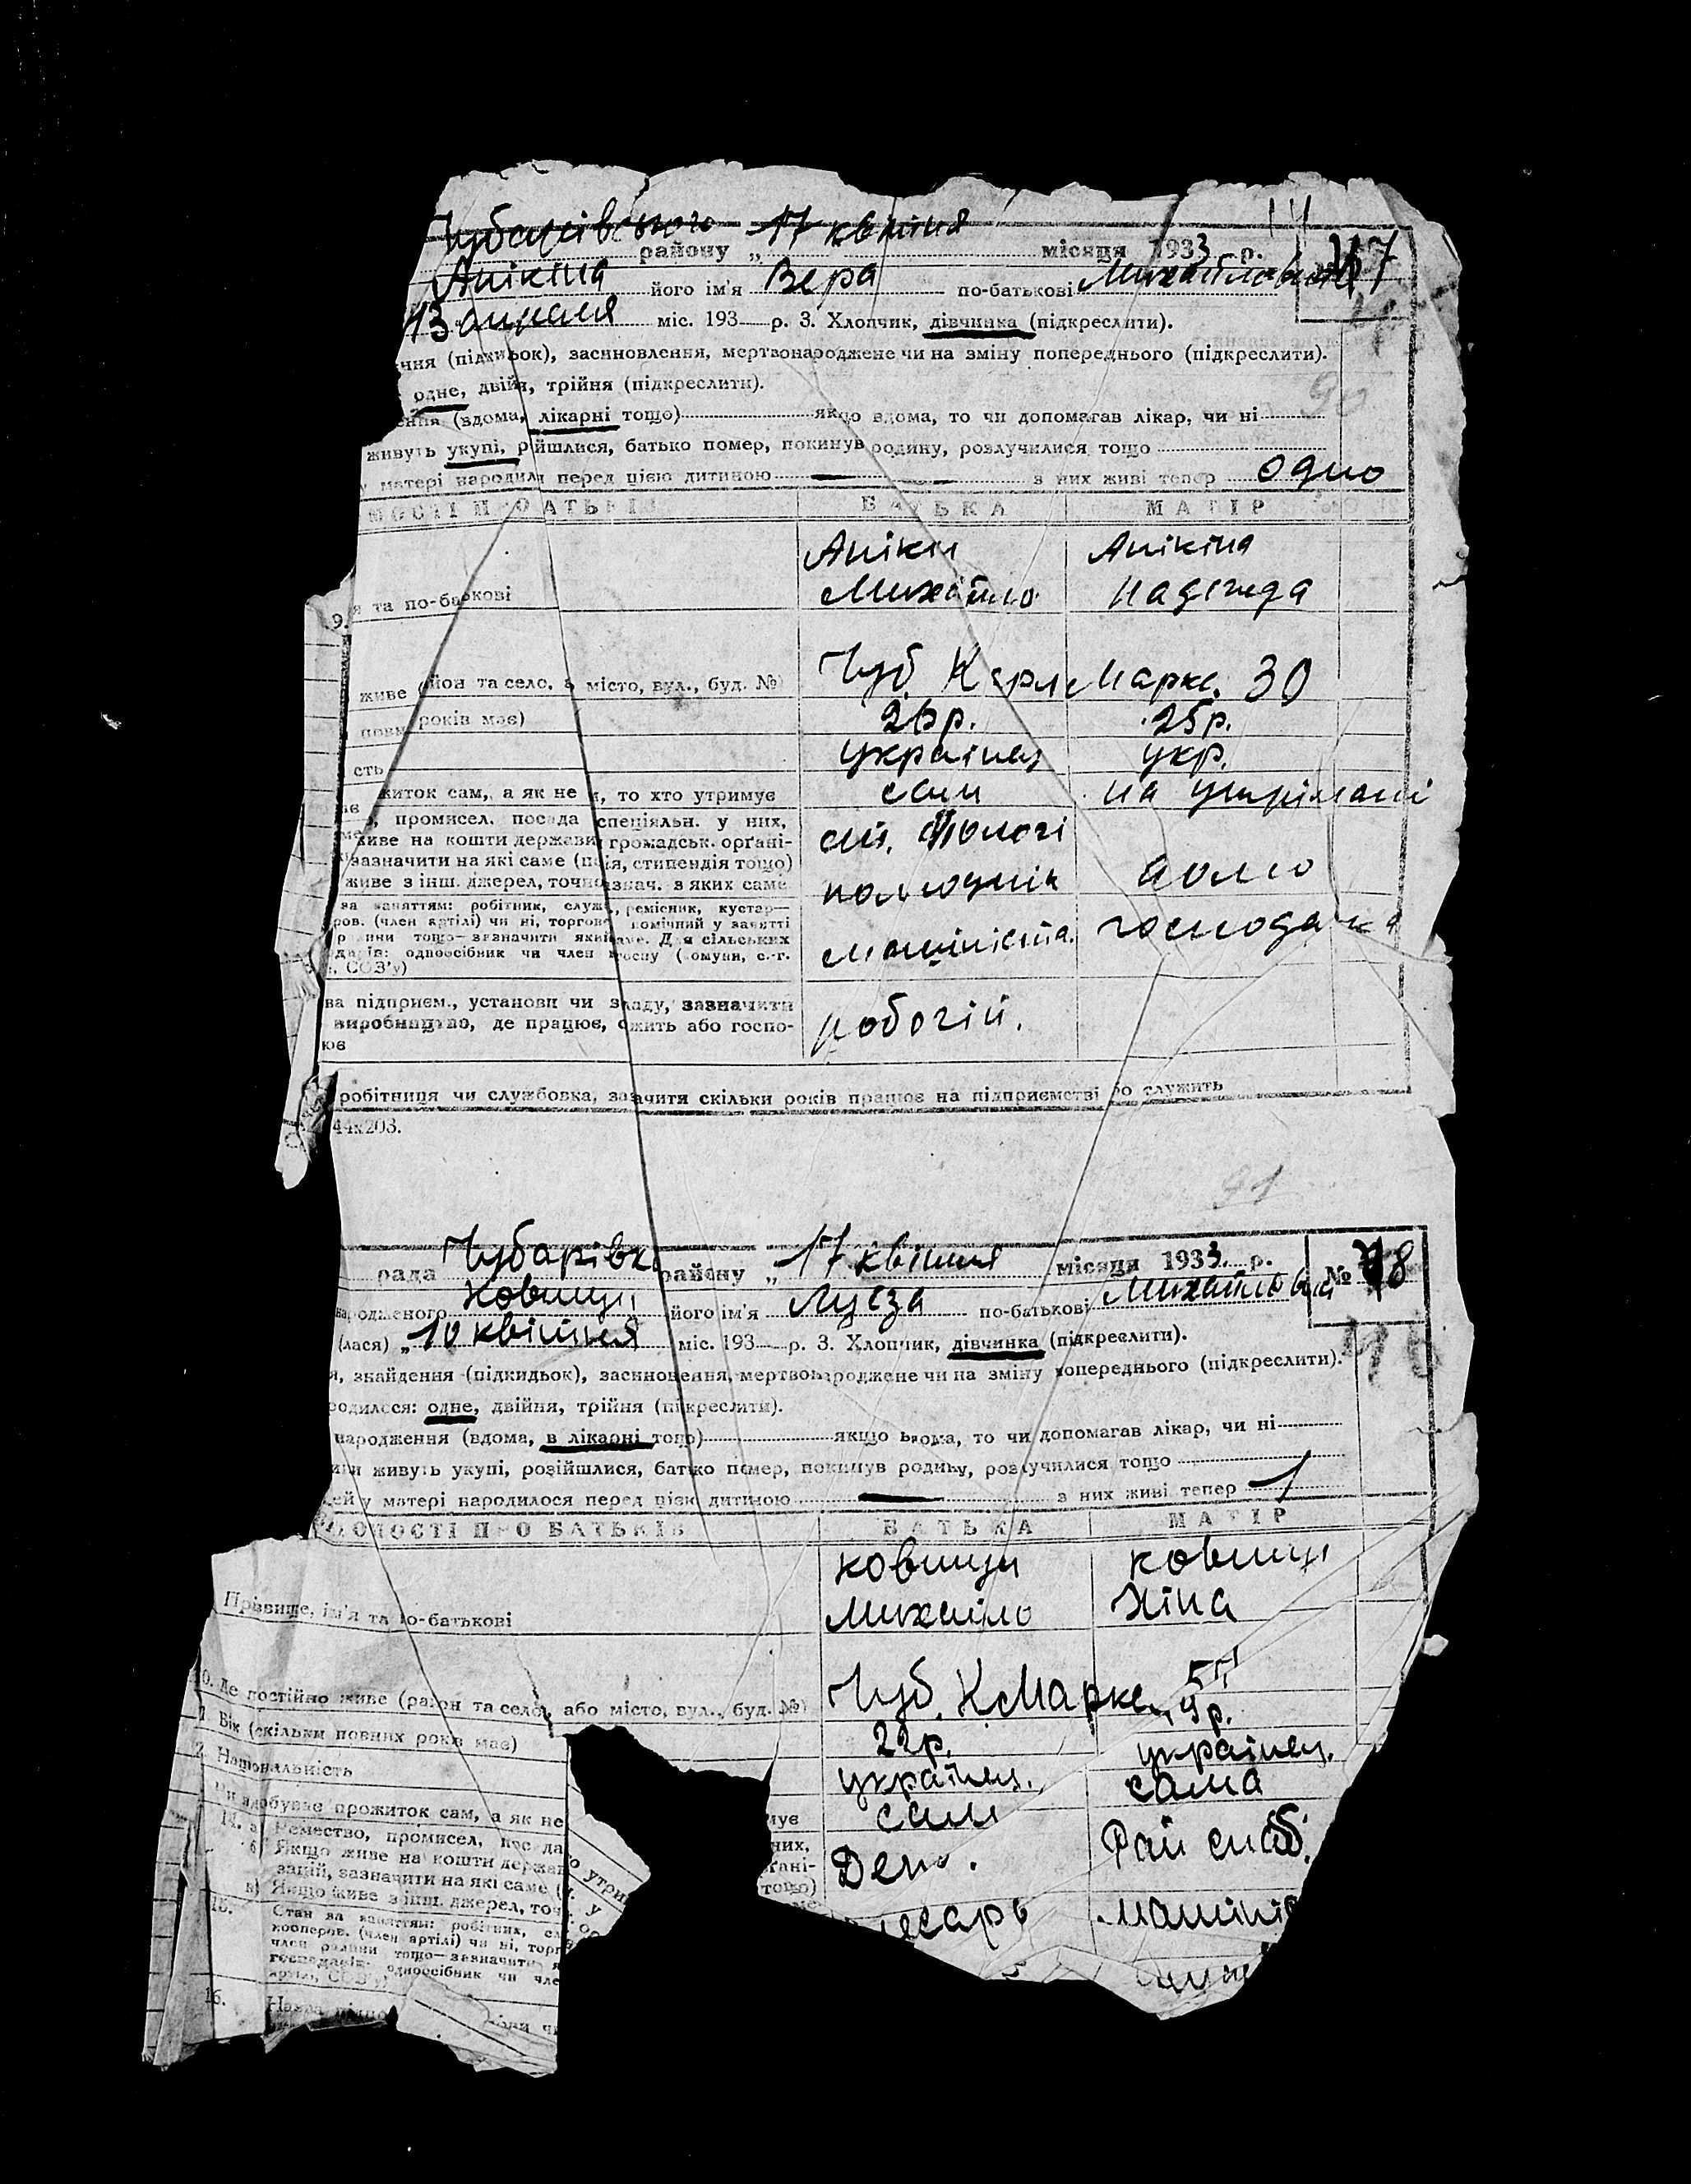 Чубарівського району „ 17 квітня місяця 1933 р. 147
Анікіна його ім'я Вера по-батькові Михайловна
13 апреля міс. 193 р. 3. Хлопчик, дівчинка (підкреслити).
ння (підкидьок), засиновлення, мертвонароджене чи на зміну попереднього (підкреслити).
одне, двійня, трійня (підкреслити).
ення (вдома, лікарні тощо) якщо вдома, то чи допомагав лікар, чи ні 90
живуть укупі, рійшлися, батько помер, покинув родину, розлучилися тощо
у матері народила перед цією дитиною — — з них живі тепер одно
БАТЬКА МАТІР
Анікин Анікіна
Михайло
я та по-баркові
9.
живе (йон та село, а місто, вул., буд. №) Чуб. Карл Маркс. 30
повн років має) 26р. 25р.
сть українец укр.
житок сам, а як не я, то хто утримує сам на утрімані
, промисел, посада спеціяльн. у них,
живе на кошти держави громадськ. орґані-
зазначити на які саме (пія, стипендія тощо)
живе з інш. джерел, точно знач. з яких саме домо
за заняттям: робітник, служ, ремісник, кустар—
ров. (член артілі) чи ні, торгов помічний у занятті
тощо—зазначити Для сільських машиніста. господарка
одноосібник чи член
СОЗ'у)
ва підприєм., установи чи зладу, зазначити
виробництво, де працює, ожить або госпо- робочій.
ює
робітниця чи службовка, зазачити скільки років працює на підприємстві бо служить
44х203.
91
рада Чубарівка району „ 17 квітня місяця 1933 р. № 48
народженого його ім'я Луєза по-батькові Михайловна
(лася) „ 10 квітня міс. 193 р. 3. Хлопчик, дівчинка (підкреслити).
я, знайдення (підкидьок), засиновення, мертвонароджене чи на зміну попереднього (підкреслити).
родилося: одне, двійня, трійня (підкреслити).
народження (вдома, в лікарні тощо) якщо вдома, то чи допомагав лікар, чи ні
живуть укупі, розійшлися, батько помер, покинув родину, розлучилися тощо
ей у матері народилося перед цією дитиною — з них живі тепер 1
ВІДОМОСТІ ПРО БАТЬКІВ БАТЬКА МАТІР
Михайло Ніна
Прізвище, ім'я та по-батькові
10. Де постійно живе (район та село, або місто, вул., буд. №) Чуб. К Маркс,
Вік (скільки повних років має) 22р.
Національність українец. українец.
Чи здобуває прожиток сам, а як не сам сама
14. а) Ремество, промисел, посада них, Депо. Рай снаб.
б) Якщо живе на кошти держав ґані-
зацій, зазначити на які саме ( тощо)
в) Якщо живе з інш. джерел, точ
15. Стан за заняттям: робітник, сл
кооперов. (член артілі) чи ні, торг
член родини тощо—зазначити я
господарів: одноосібник чи чле
артілі, СОЗ'у)
16. Назва підпр